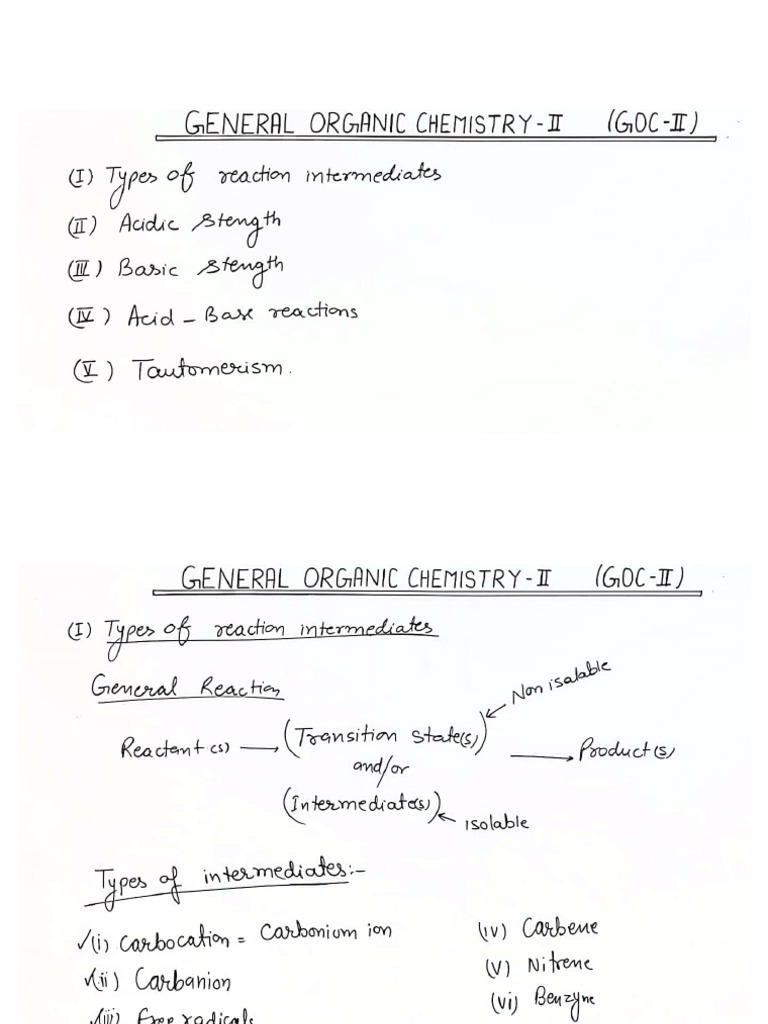 GENERAL ORGANIC CHEMISTRY-II (GOC-II)
(I) Types of reaction intermediates
(II) Acidic Stength
(III) Basic Stength
(IV) Acid - Base reactions
(V) Tautomerism.
GENERAL ORGANIC CHEMISTRY-II (GOC-II)
(I) Types of reaction intermediates
General Reaction
Non isalable
Reactant(s) ⟶ (Transition State(s)) ⟶ Product(s)
and/or
(Intermediate(s))
isolable
Types of intermediates:-
✓(i) Carbocation = Carbonium ion
✓(ii) Carbanion
✓(iii) Free radicals
(iv) Carbene
(v) Nitrene
(vi) Benzyne